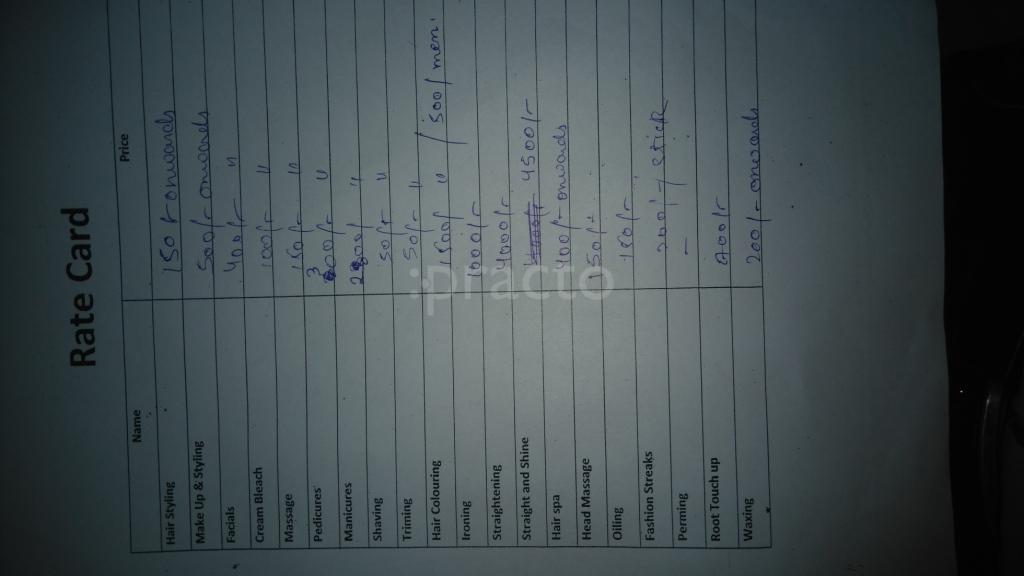 Rate Card
Name Price
Hair Styling 150/- onwards
Make Up & Styling 500/- onwards
Facials 400/- "
Cream Bleach 100/- "
Massage 150/- "
Pedicures 300/- "
Manicures "
Shaving 50/- "
Triming 50/- "
Hair Colouring 1500/ " / 500/men.
Ironing 1000/-
Straightening 4000/-
Straight and Shine 4500/-
Hair spa 400/- onwards
Head Massage 150/-
Oiling 150/-
Fashion Streaks 200/-/ stick
Perming -
Root Touch up 400/-
Waxing 200/- onwards
:practo